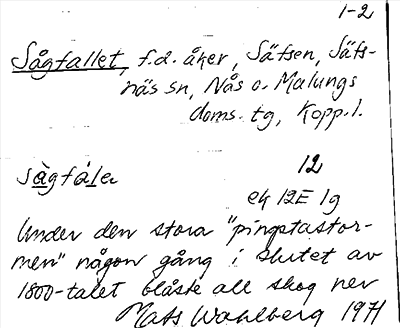 1-2
Sågfallet, f.d. åker, Säfsen, Säfs-
näs sn, Nås o. Malungs
doms. tg, Kopp. l.
sàgfàle
12
ek 12E 1g
Under den stora "pingstastor-
men" någon gång i slutet av
1800-talet blåste all skog ner
Mats Wahlberg 1971